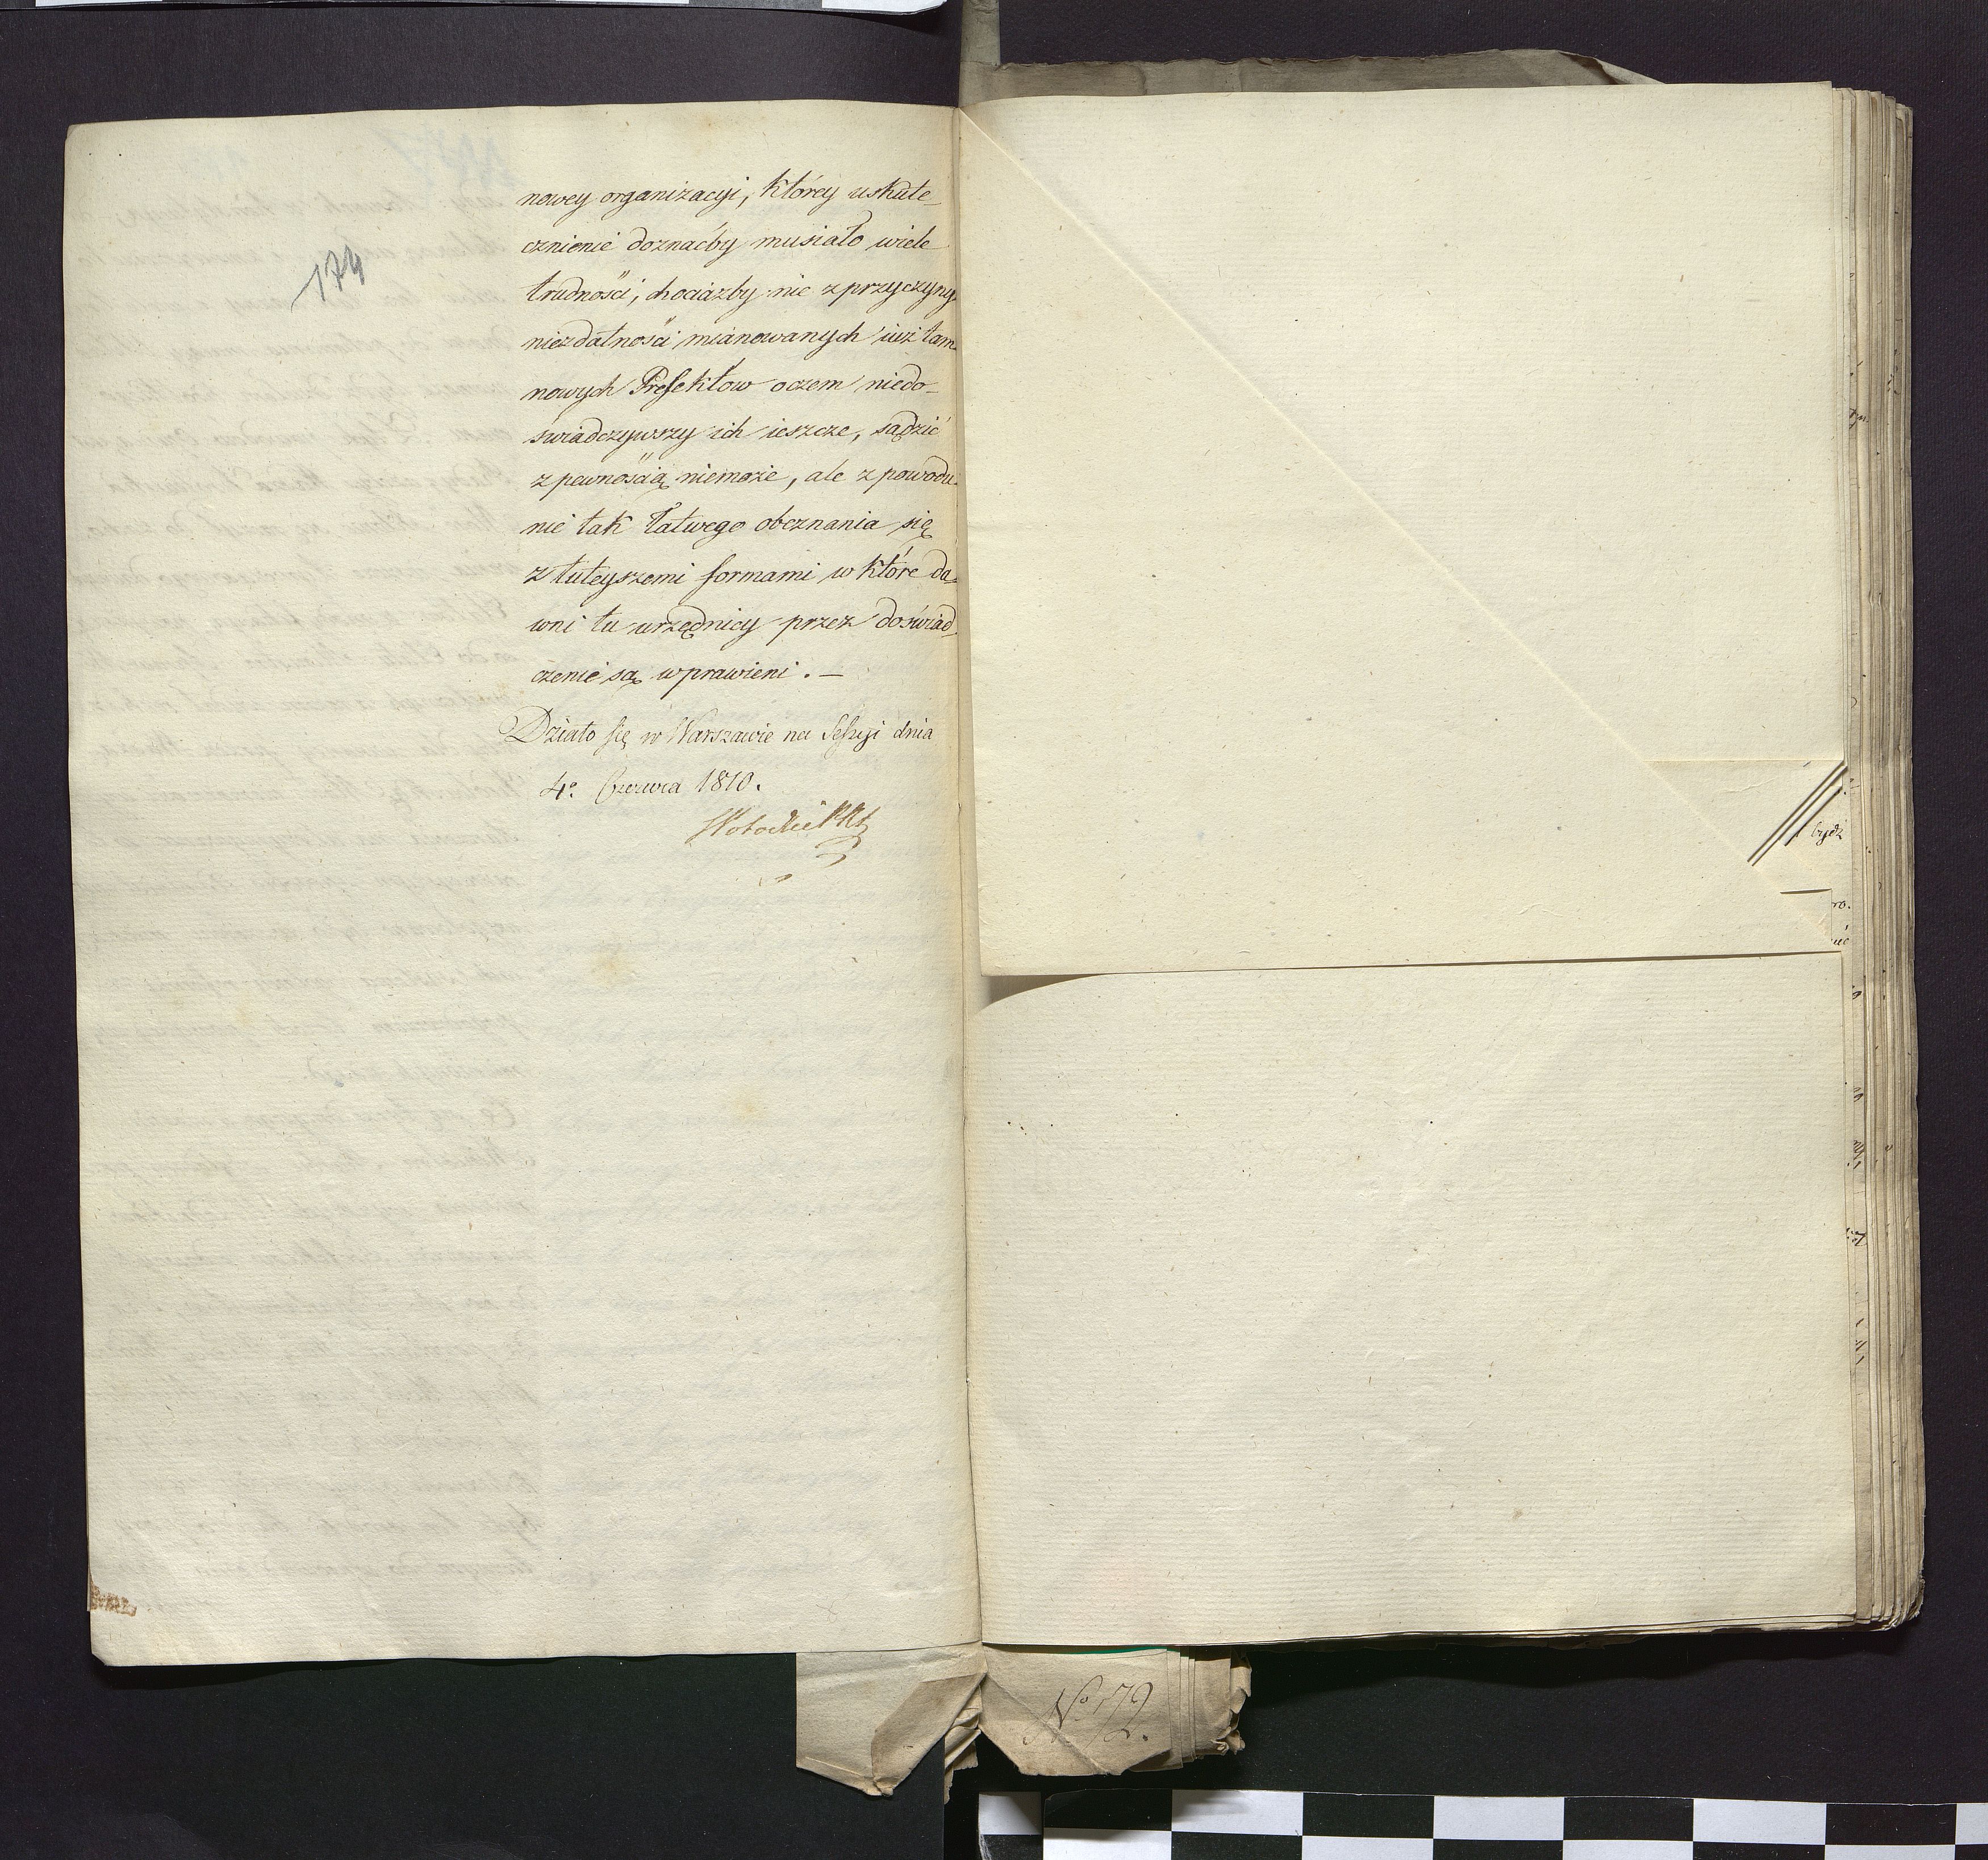 174
nowey organizacyi, którey uskute_
cznienie doznaćby musiało wiele
trudności, chociażby nie z przyczyny
niezdatności mianowanych iuż tam
nowych Prefektow oczem niedo_
świadczywszy ich ieszcze, sądzić
z pewnością niemoże, ale z powodu
nie tak łatwego obeznania się
z tuteyszemi formami w które da_
wni tu urzędnicy przez doświad_
czenie są wprawieni. _
Działo się w Warszawie na Sessyi dnia
4º. Czerwca 1810.
bydź
ro.
uć
Nº. 72.